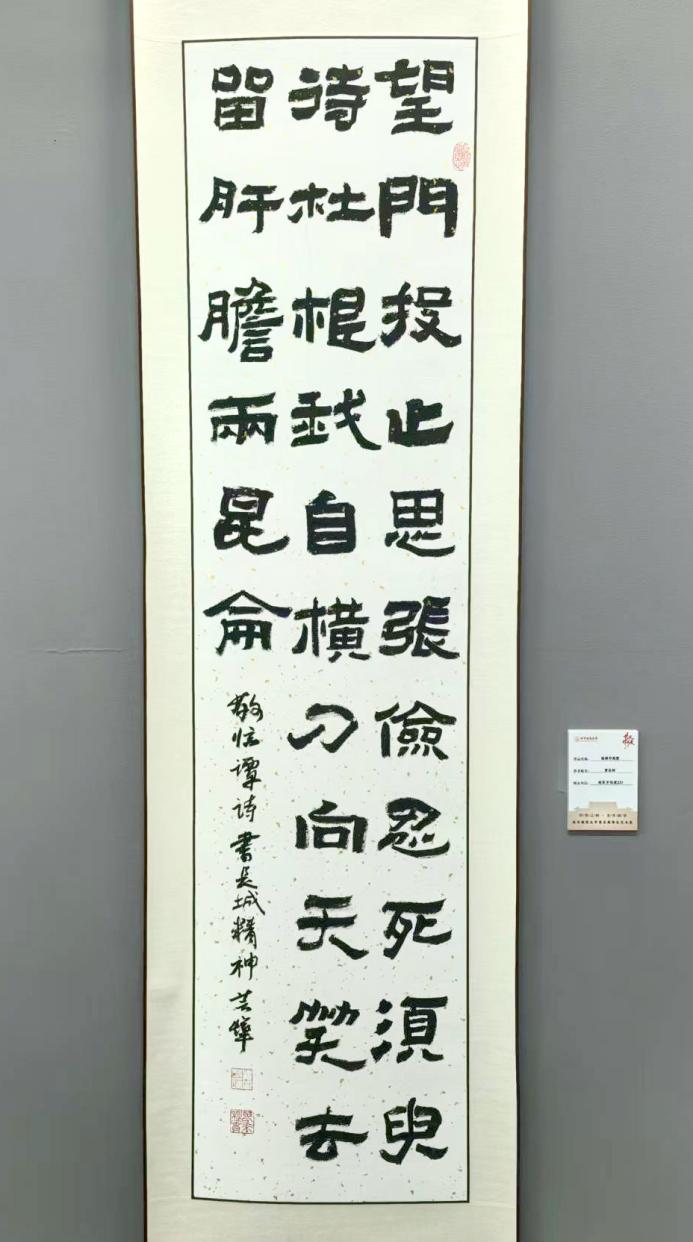 望門投止思張儉忍死湏臾
待杜根我自橫刀向天笑去
留肝膽兩昆侖
敬憶譚詩書長城精神